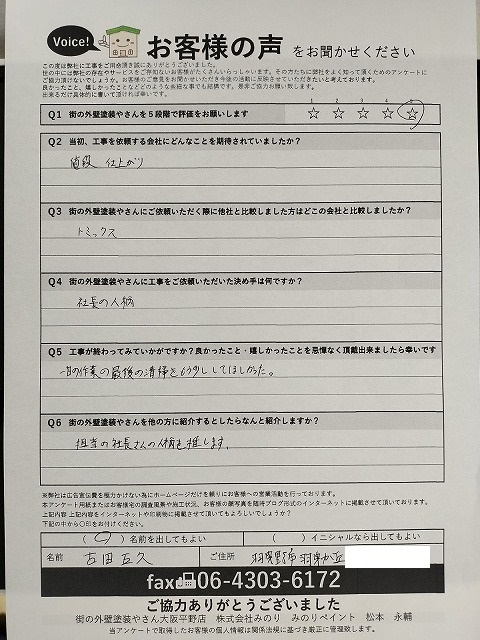 Voice!
お客様の声 をお聞かせください
この度は弊社に工事をご用命頂き誠にありがとうございました。
世の中には弊社の存在やサービスをご存知ないお客様がたくさんいらっしゃいます。その方たちに弊社をよく知って頂くためのアンケートに
ご協力頂けないでしょうか。お客様のご意見をお聞かせいただき今後の活動に反映させていただきたいと考えております。
良かったこと、嬉しかったことなどどのような些細な事でも結構です。是非ご協力お願い致します。
出来るだけ具体的に書いて頂ければ幸いです。
Q1 街の外壁塗装やさんを5段階で評価をお願いします
1 2 3 4 5
☆ ☆ ☆ ☆ ☆
Q2 当初、工事を依頼する会社にどんなことを期待されていましたか?
値段 仕上がり
Q3 街の外壁塗装やさんにご依頼いただく際に他社と比較しました方はどこの会社と比較しましたか?
トミックス
Q4 街の外壁塗装やさんに工事をご依頼いただいた決め手は何ですか?
社長の人柄
Q5 工事が終わってみていかがですか?良かったこと・嬉しかったことを忌憚なく頂戴出来ましたら幸いです
一日の作業の最後の清掃をもう少ししてほしかった。
Q6 街の外壁塗装やさんを他の方に紹介するとしたらなんと紹介しますか?
担当の社長さんの人柄を推します。
※弊社は広告宣伝費を極力かけない為にホームページだけを頼りにお客様への営業活動を行っております。
本アンケート用紙またはお客様宅の調査風景や施工状況、お客様の顔写真を随時ブログ形式のインターネットに掲載させて頂いております。
上記内容 上記内容をインターネットや印刷物に掲載させて頂いてもよろしいでしょうか?
下記の中から〇印をお付けください。
( ○ ) 名前を出してもよい ( ) イニシャルなら出してもよい
名前 吉田 互久 ご住所 羽曳野市 羽曳が丘
fax 06-4303-6172
ご協力ありがとうございました
街の外壁塗装やさん大阪平野店 株式会社みのり みのりペイント 松本 永輔
当アンケートで取得したお客様の個人情報は関係法規に基づき厳正に管理致します。